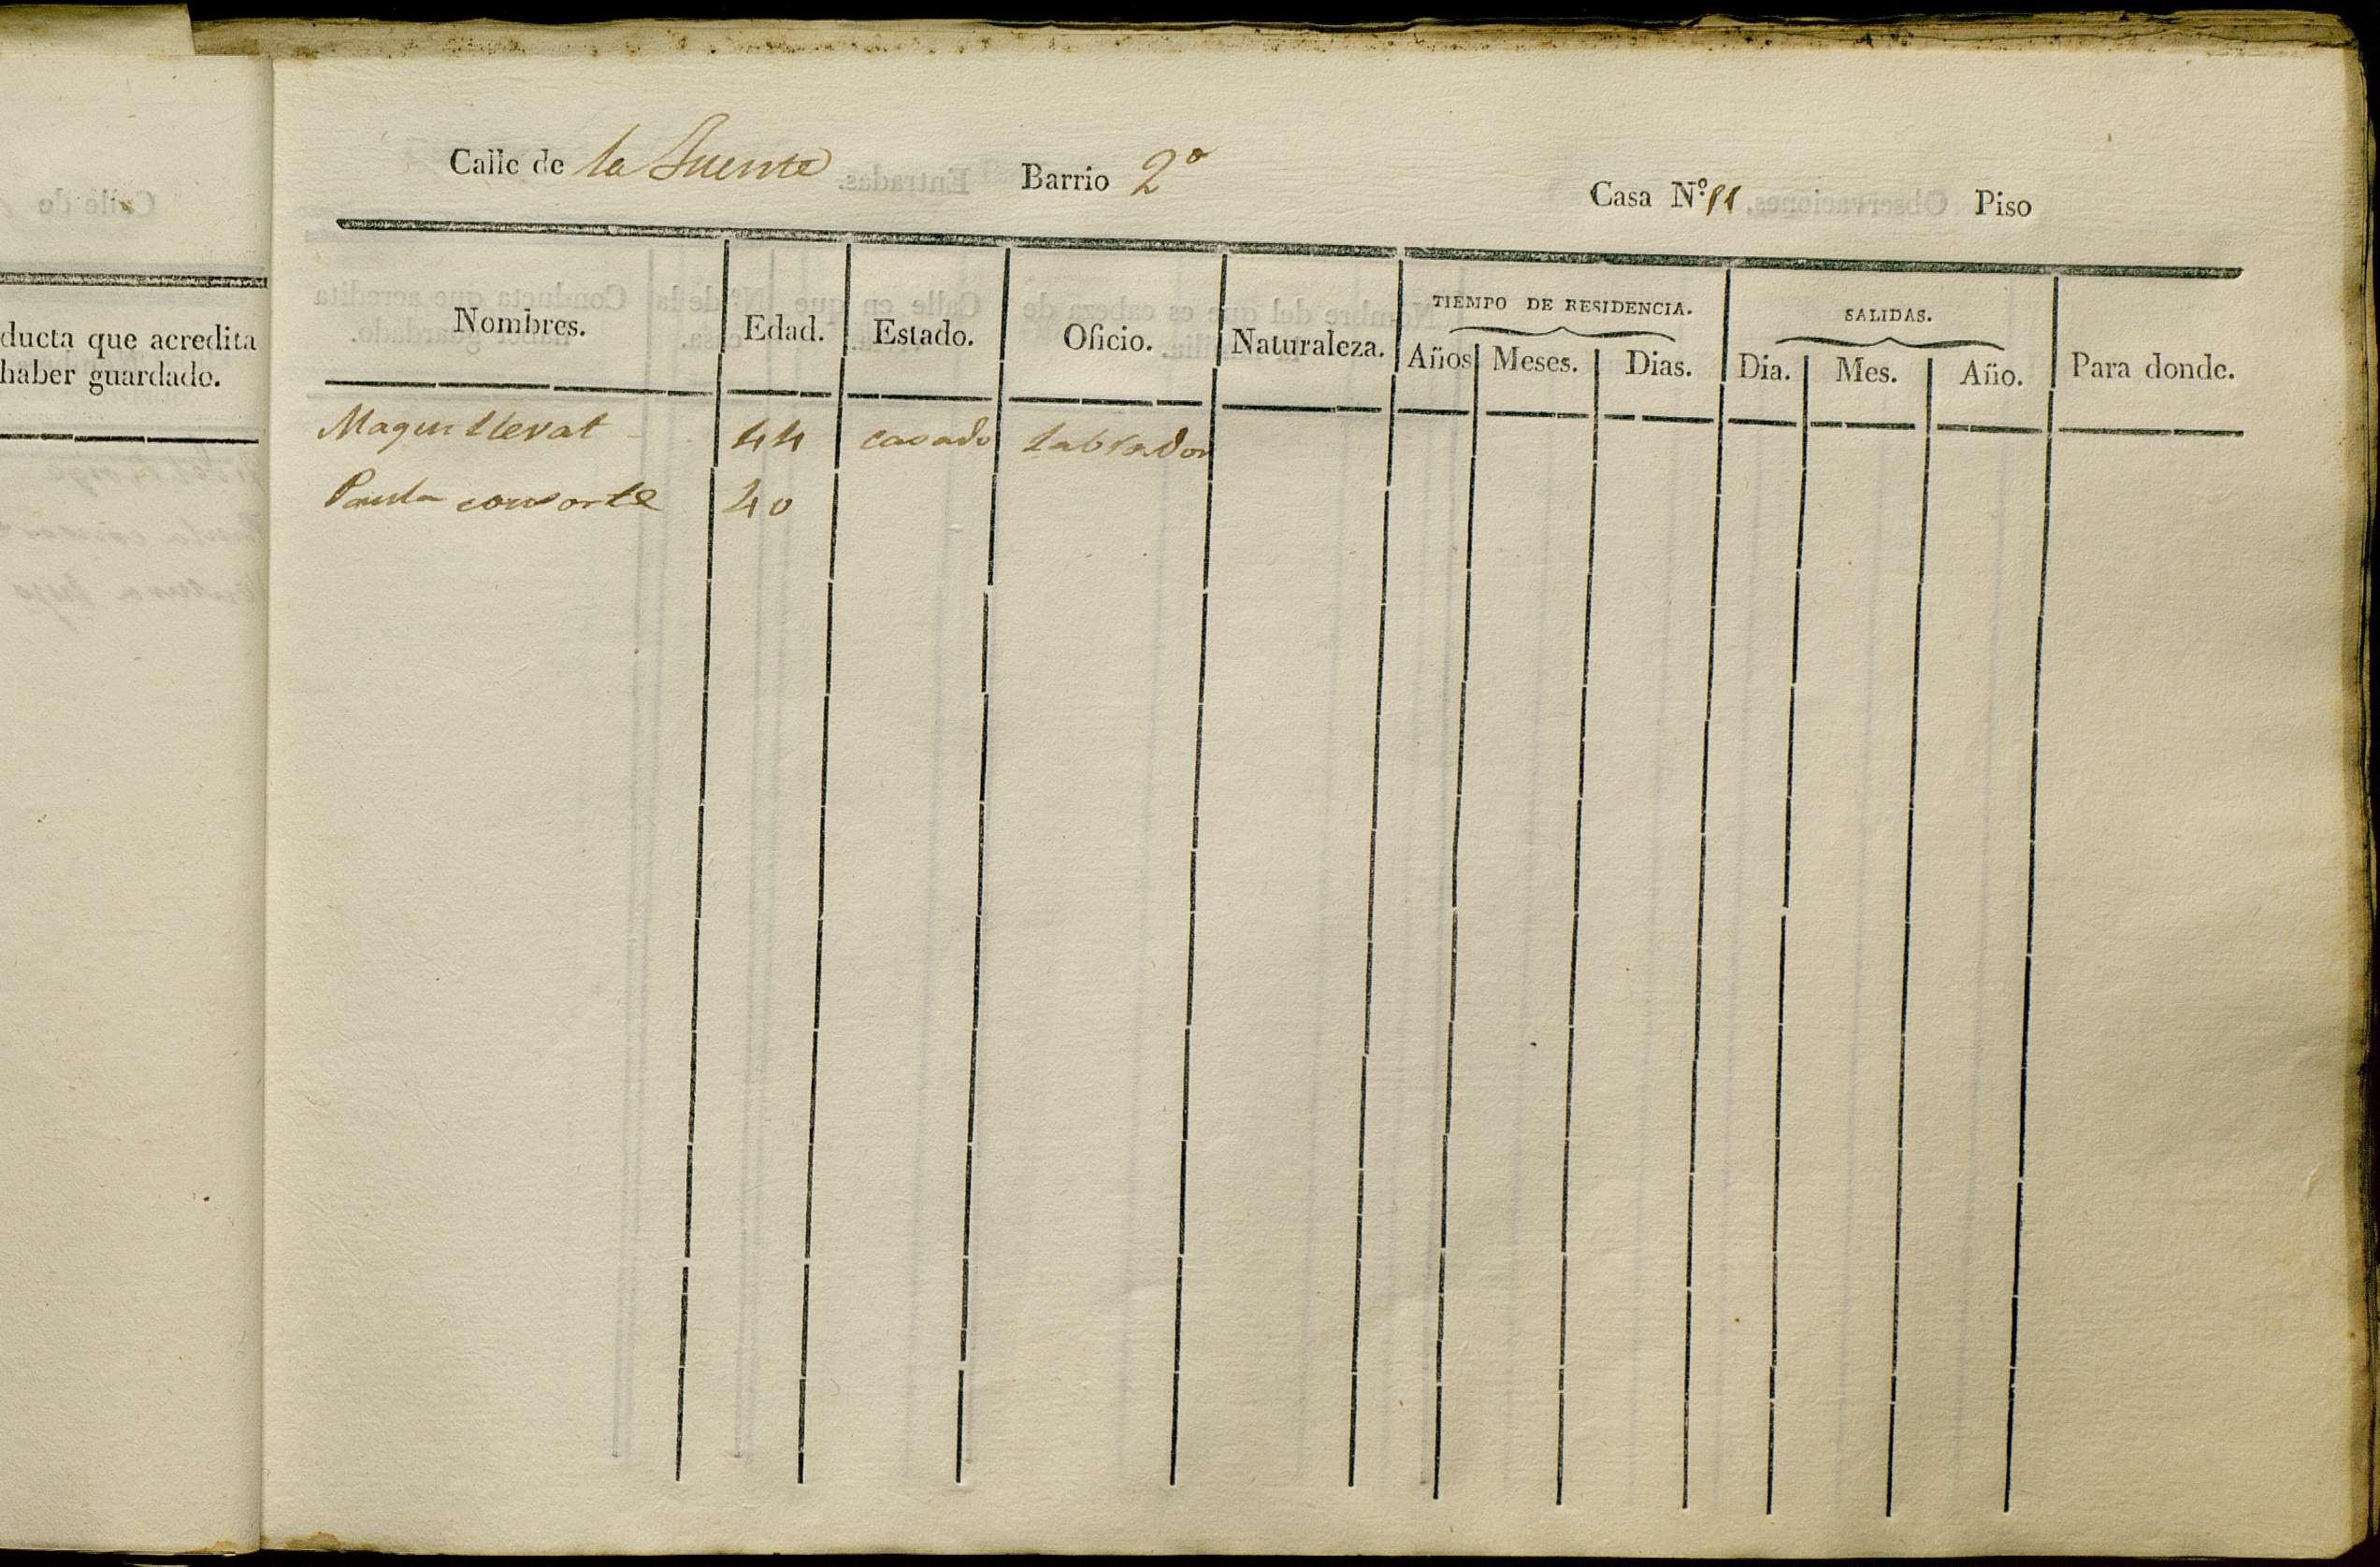 Calle de la Fuente Barrio 2º Casa Nº 11 Piso
ducta que acredita
haber guardado.
Nombres. Edad. Estado. Oficio. Naturaleza. TIEMPO DE RESIDENCIA. Años Meses. Dias. SALIDAS. Dia. Mes. Año. Para donde.
Magin Llevat 44 casado Labrador
Paula consorte 40